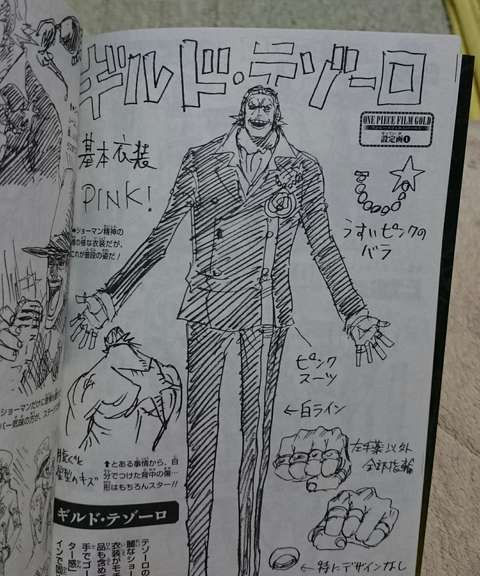 ギルド・テゾーロ
ONE PIECE FILM GOLD
設定画❶
基本衣装
PINK!
●ショーマン精神の
塊の様な衣装だが、
これが普段の姿だ!
うすいピンクの
バラ
ピンク
スーツ
←白ライン
左手薬以外
全部指輪
←特にデザインなし
⬆とある事情から、自
分でつけた背中の傷…
形はもちろんスター!!
星型のキズ
ギルド・テゾーロ
テゾーロの
麗なショー
衣装がモチ
品も含め
手でゴー
ター感」
インで固
ショーマンだけに